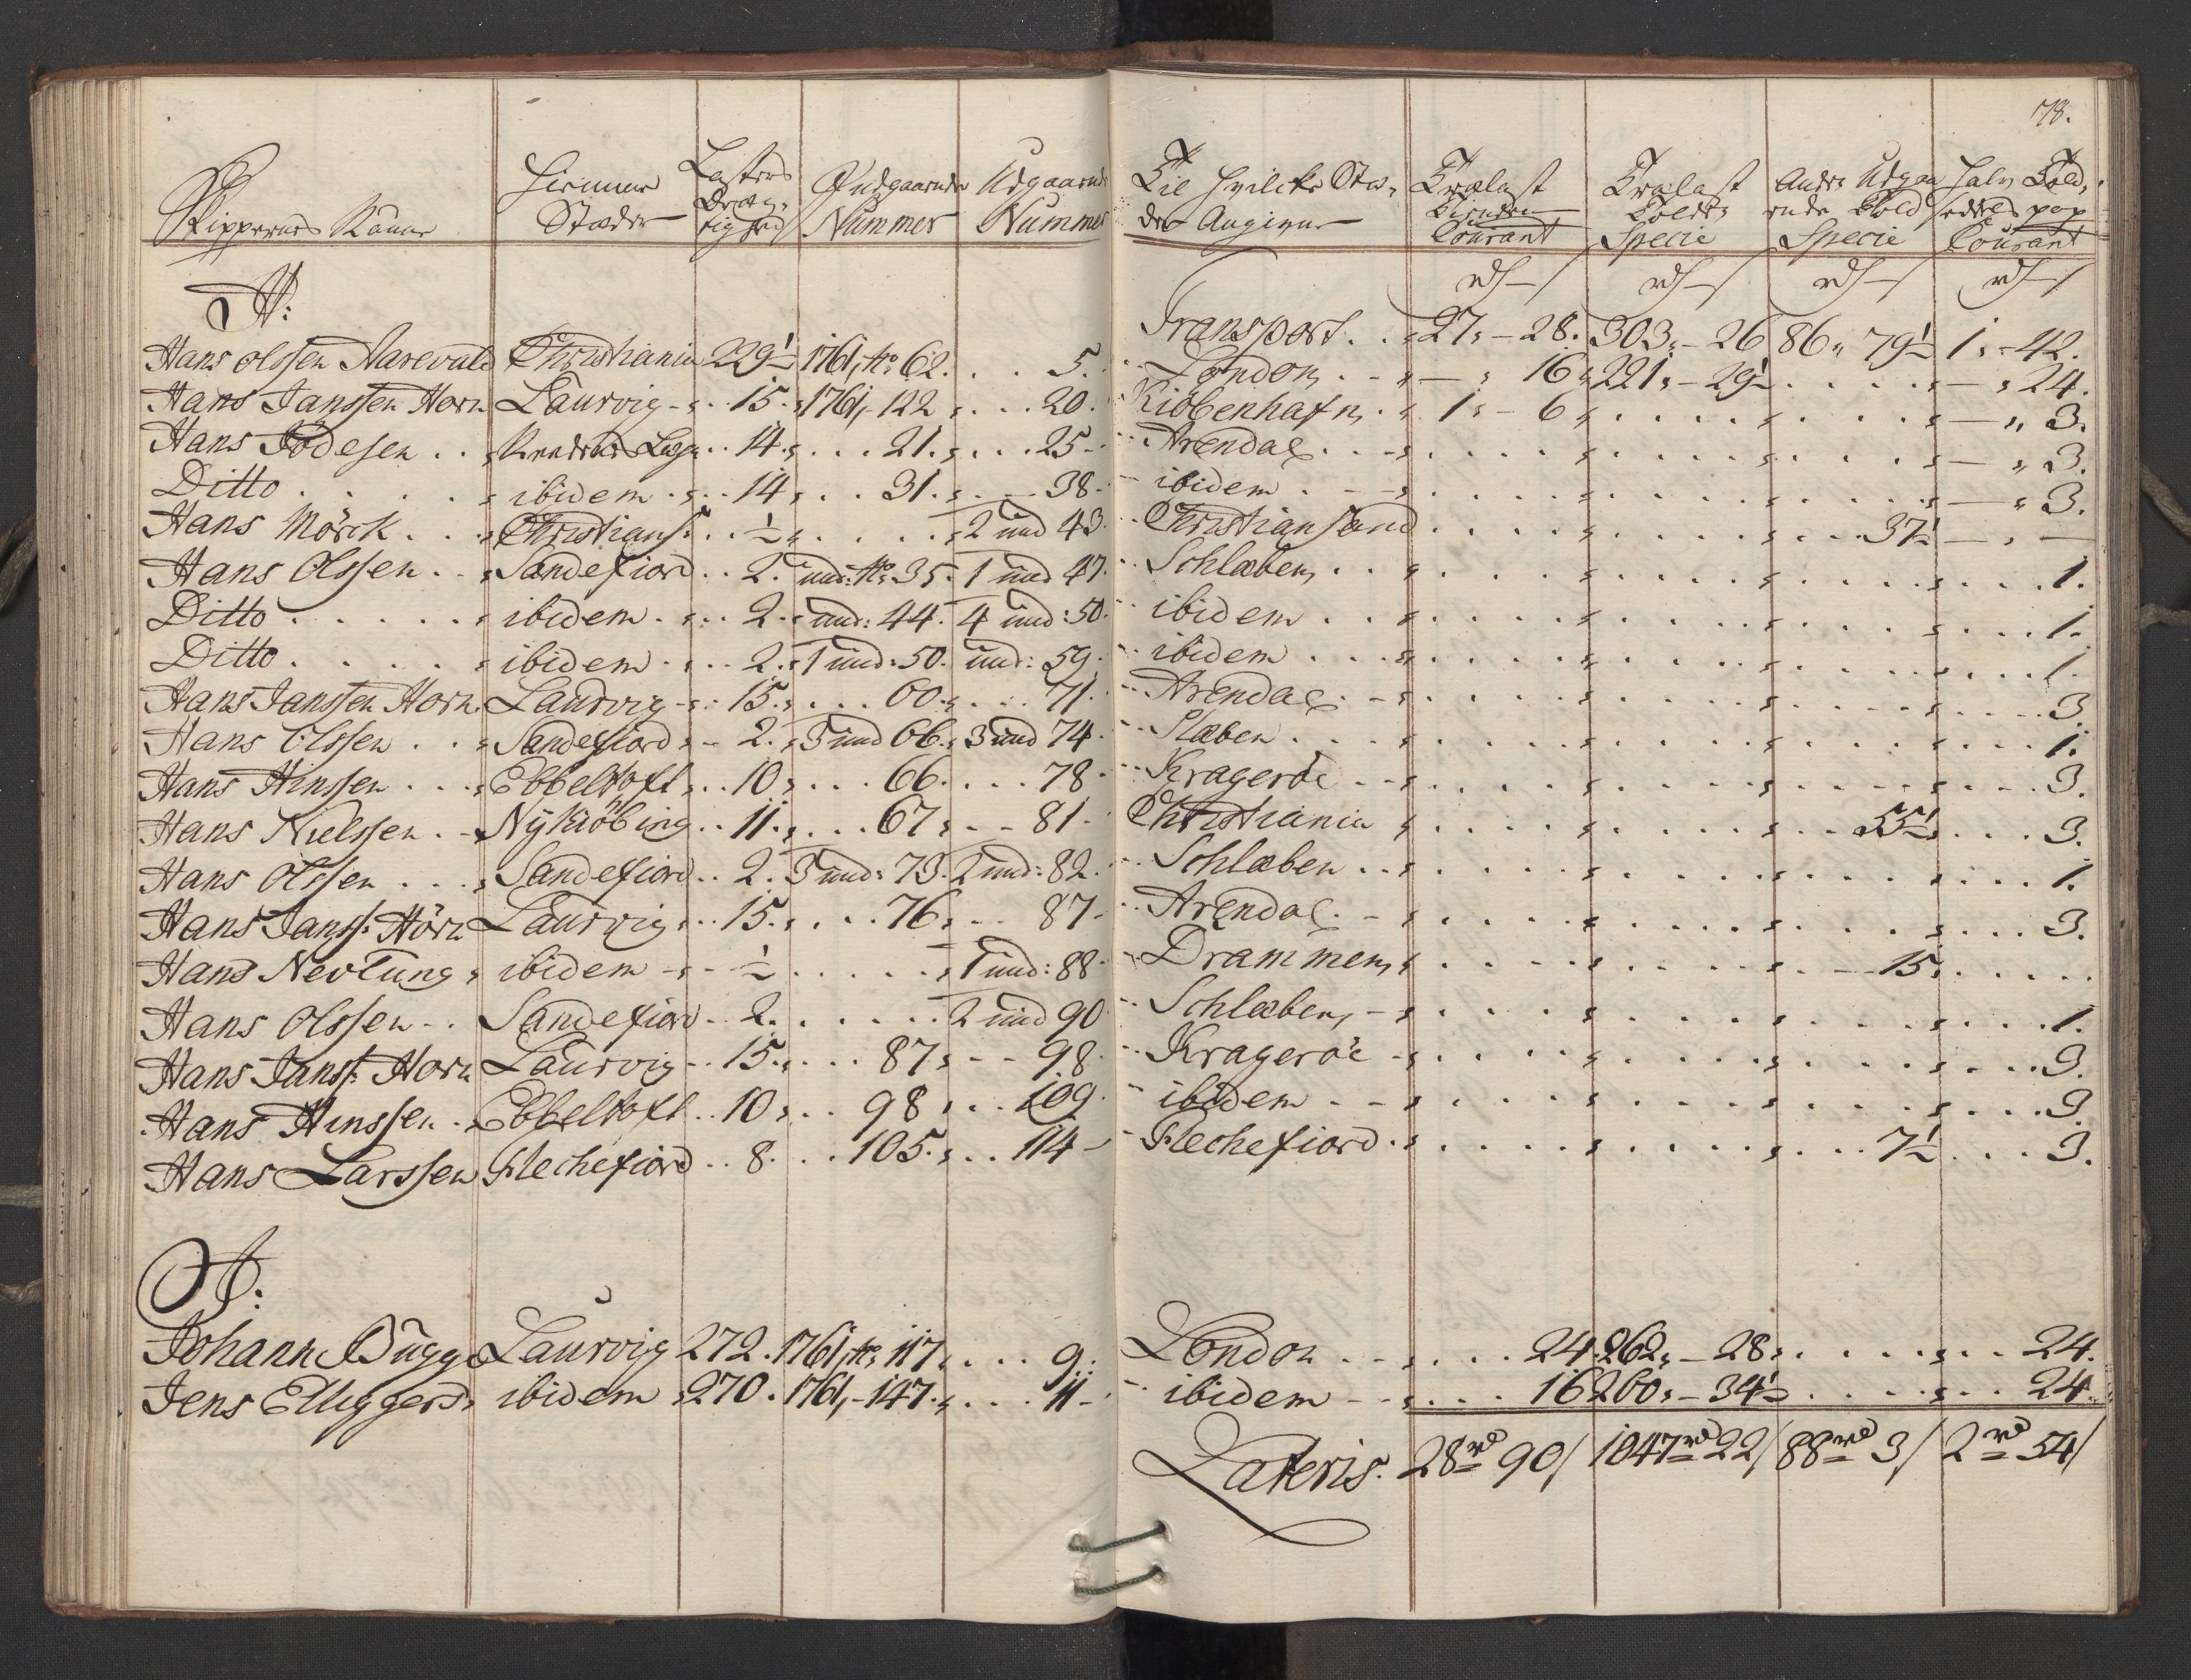 78.
Skippernes Nafne | Hiemme Stæder | Lasters Dræg- tighed | Indgaaende Nummer | Udgaaende Nummer | Til Hvilcke Stæ- der Angivne | Trælast Courant | Trælast Tolden Specie | Andre Udgaa ende Told Specie | Halv Told, Courant
H:
Transport . . 27 - 28. 303 - 26 86 79½ 1 - 42.
Hans Olssen Aarevald Christiania 229½ 1761, No 62. . . 5. London - 16 221 - 29½ . . . — 24.
Hans Janssen Horn Laurvig - 15. 1761, - 122 . . . 20. Kiöbenhafn 1 - 6 . . . — 3.
Hans Födesen . . 14. . . . 21. . . . 25 - Arendal . . . — 3.
Ditto . . . ibidem . . 14 . . 31. . . 38 - ibidem . . . — 3.
Hans Mörck . . . Christians: . . ½ . . . 2 und 43. Christiansand . . . 37½ — —
Hans Olssen . . Sandefiord . . 2. und: No 35. 1 und 47. Schlæben . . . 1.
Ditto . . . ibidem . . . 2. und: 44. 4 und: 50. ibidem . . . 1.
Ditto . . . ibidem . . . 2. 1 und: 50. und: 59. ibidem . . . 1.
Hans Janssen Horn. Laurvig - 15. . . . 60. . . 71. Arendal . . . 3.
Hans Olssen . . Sandefiord - 2. 3 und 66. 3 und 74. Slæben . . . 1.
Hans Hinssen . . . Ebbeltoft . . 10 . . . 66. . . . 78 - Krageröe . . . 3.
Hans Nielssen . - Nÿkiöbing . . 11. . . . 67 - - 81 - Christiania . . . 55½ . . . 3.
Hans Olssen . . . Sandefiord . . 2. 3 und: 73. 2 und: 82. Schlæben . . . 1.
Hans Janss: Hörn Laurvig . . 15. . . . 76 . - - 87 - Arendal . . . 3.
Hans Nevlung ibidem - - ½ . . . 1 und: 88 - Drammen . . . 15 . . .
Hans Olssen - . Sandefiord - 2. . . . 2 und 90 Schlæben - . . . 1.
Hans Janss: Horn Laurvig - . 15. . . . 87 - - 98. Krageröe . . . 3.
Hans Hinssen . Ebbeltoft . . 10 . . . 98 . . . 109. ibidem . . . 3.
Hans Larssen Flechefiord . . 8. . . 105. . . 114 - Flechefiord . . . 7½ . . . 3.
J:
Johann Bugge Laurvig 272. 1761, No 117 . . . 9. London . . . 24. 262 - 28 . . . 24.
Jens Elliggers ibidem 270. 1761, - 147. . . . 11 - ibidem - . . . 16 260 - 34½ . . . 24.
Lateris. 28 rd 90 / 1047 rd 22 / 88 rd 3 / 2 rd 54 /